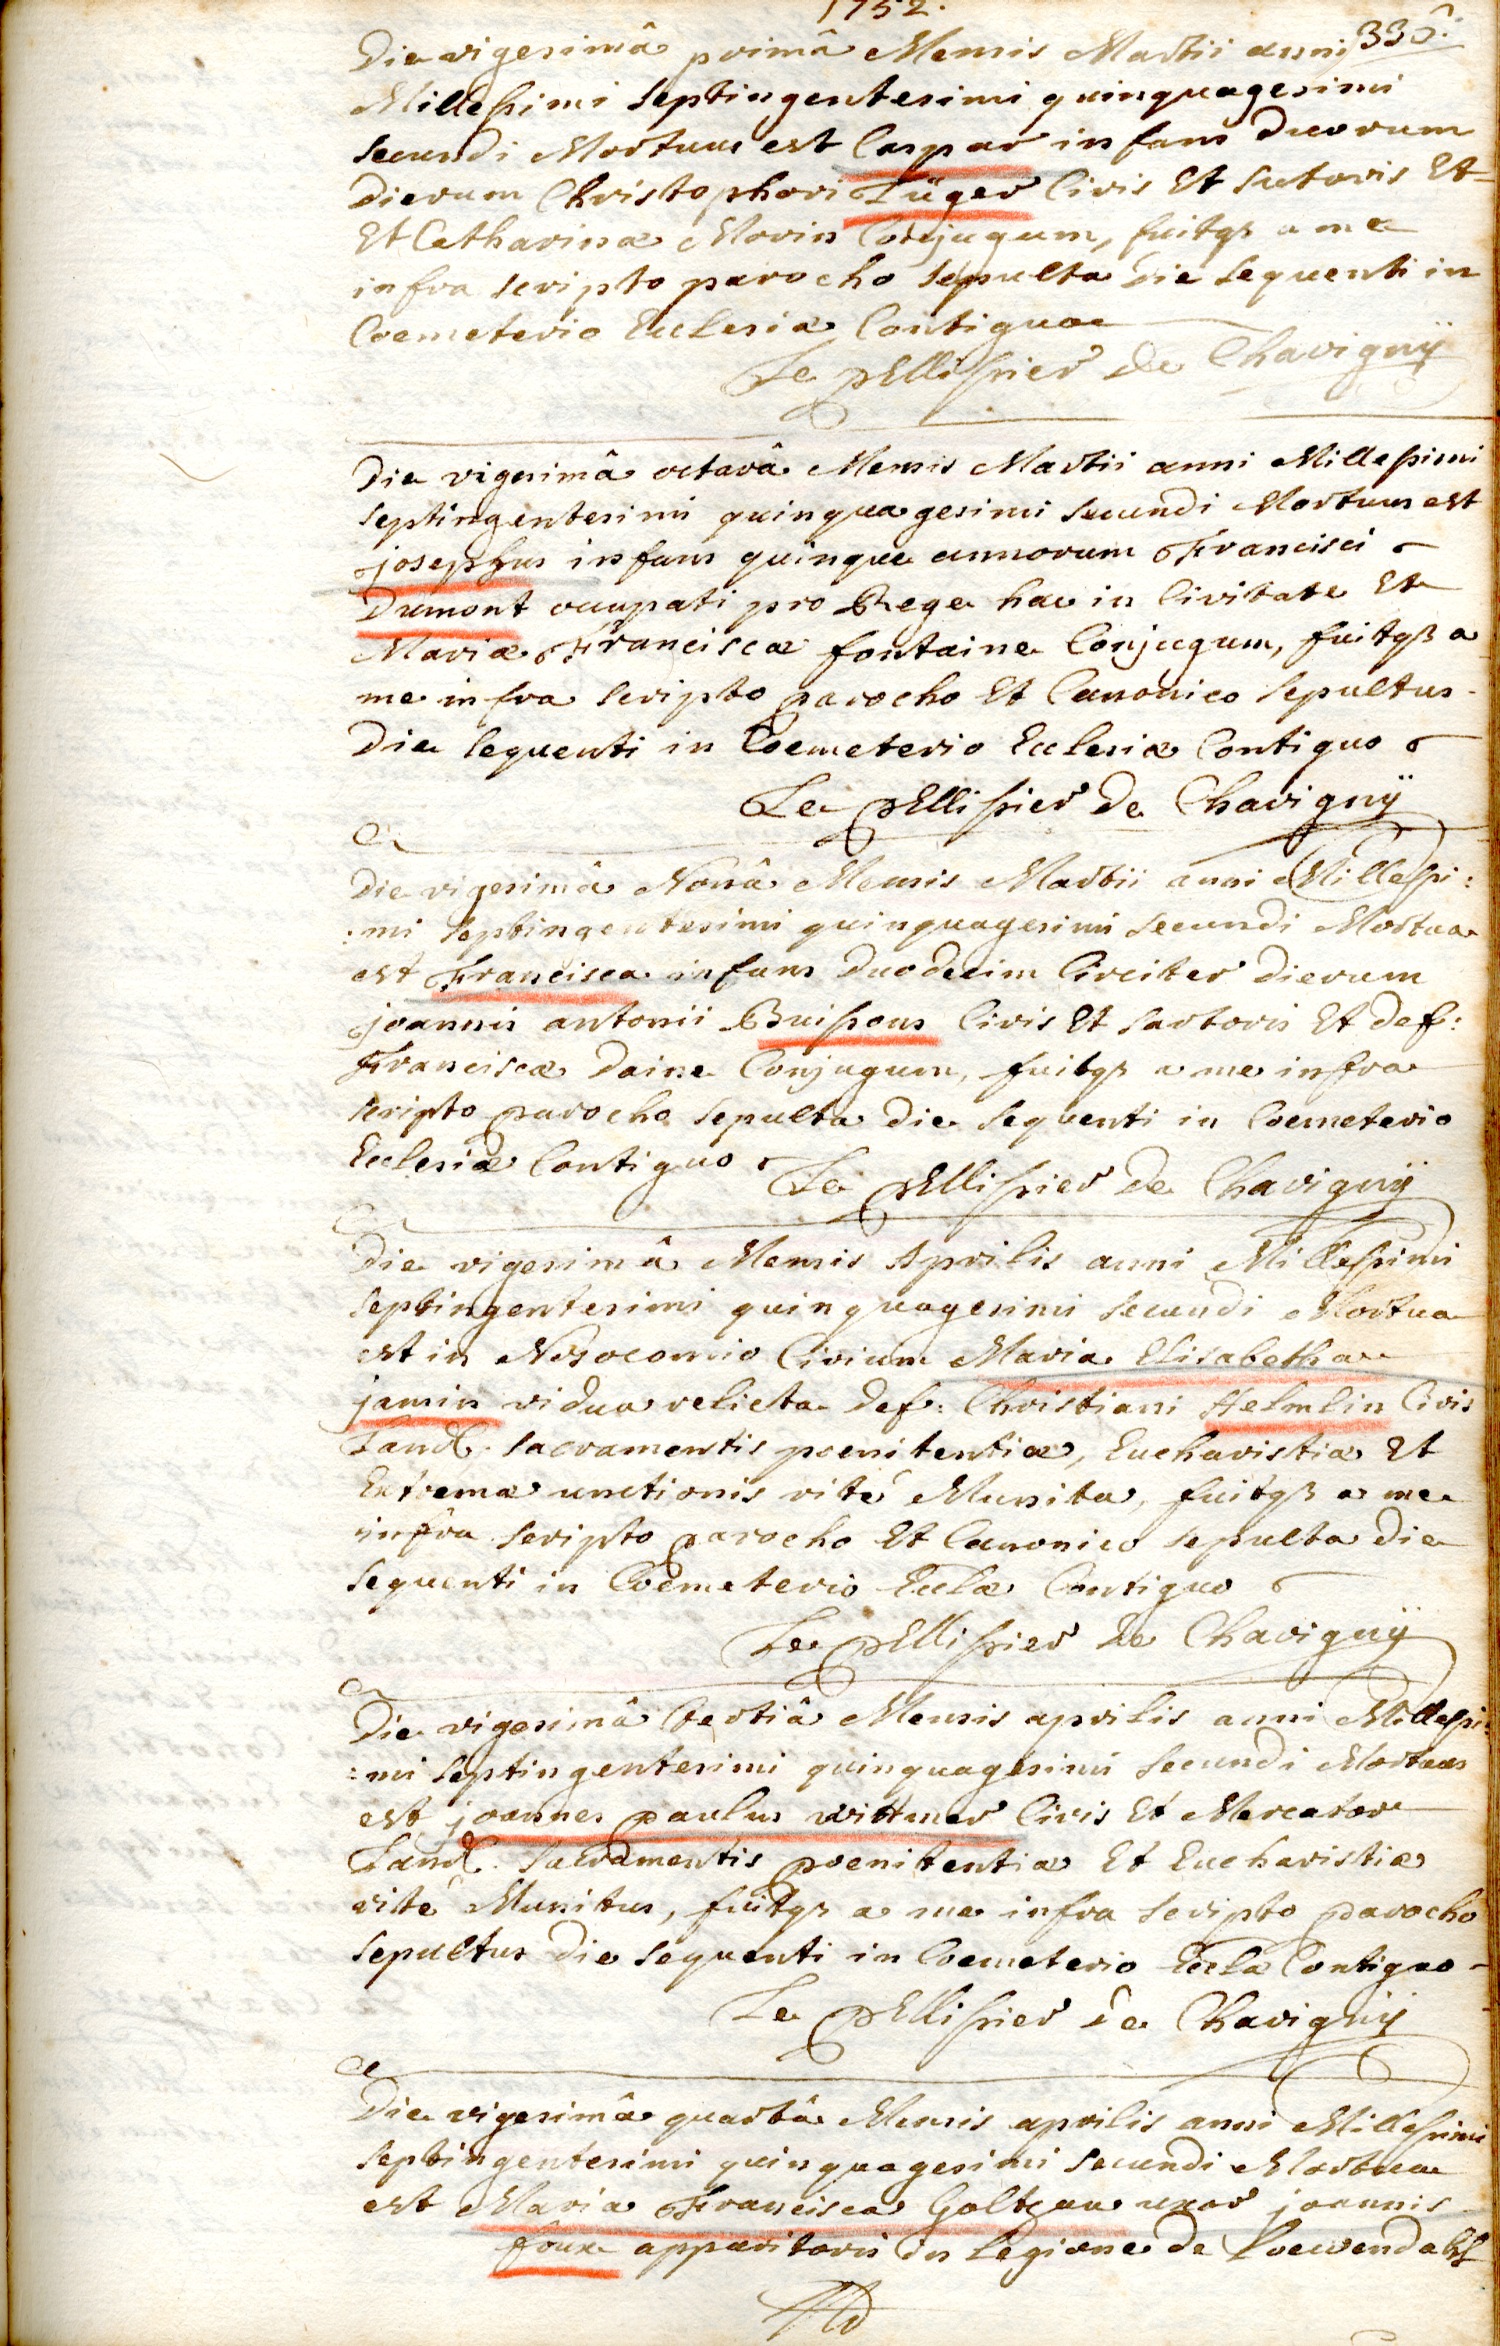 1752.
335.
Die vigesimâ primâ Mensis Martii anni
Millesimi septingentesimi quinquagesimi
secundi Mortuus est Caspar infans duorum
dierum Christophori Füger Civis Et sutoris Et
Et Catharinæ Morin Conjugum, fuitqs a me
infra scripto parocho sepulta die sequenti in
Coemeterio Ecclesiæ Contiguo
Le pEllissier de Chavignÿ
Die vigesimâ octavâ Mensis Martii anni Millesimi
septingentesimi quinquagesimi secundi Mortuus est
josephus infans quinque annorum Francisci
Dumont occupati pro Rege hac in Civitate Et
Mariæ Franciscæ fontaine Conjugum, fuitqs a
me infra scripto parocho Et Canonico sepultus
Die sequenti in Coemeterio Ecclesiæ Contiguo
Le pEllissier de Chavignÿ
Die vigesimâ Nonâ Mensis Martii anni Millesi:
:mi septingentesimi quinquagesimi secundi Mortua
est Francisca infans duodecim Circiter dierum
joannis antonii Buissons Civis Et sartoris Et def:
Franciscæ Daine Conjugum, fuitqs a me infra
scripto parocho sepulta die sequenti in Coemeterio
Ecclesiæ Contiguo
Le pEllissier de Chavignÿ
Die vigesimâ Mensis Aprilis anni Millesimi
septingentesimi quinquagesimi secundi Mortua
est in Nosocomio Civium Maria Elisabetha
jamin vidua relicta def: Christiani Helmlin Civis
Sanct. sacramentis poenitentiæ, Eucharistiæ Et
Extremæ unctionis rité Munita, fuitqs a me
infra scripto parocho Et Canonico sepulta die
sequenti in Coemeterio Ecclæ Contiguo
Le pEllissier de Chavignÿ
Die vigesimâ tertiâ Mensis aprilis anni Millesi:
:mi septingentesimi quinquagesimi secundi Mortuus
est joannes paulus wittmer Civis Et Mercator
Sanct. sacramentis poenitentiæ Et Eucharistiæ
rité Munitus, fuitqs a me infra scripto parocho
sepultus die sequenti in Coemeterio Ecclæ Contiguo
Le pEllissier de Chavignÿ
Die vigesimâ quartâ Mensis aprilis anni Millesimi
septingentesimi quinquagesimi secundi Mortua
est Maria Francisca uxor joannis
foux apparitoris in Legione de Loewendahl